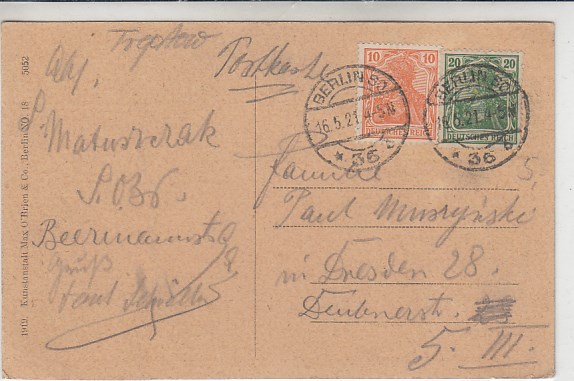 Treptow
Postkarte
Abs.
Matuszczak
S.O36.
Beermannstr. 9
Gruß
Familie
Paul Muszyński
in Dresden 28.
5. III.
10 10
DEUTSCHES REICH
20 20
DEUTSCHES REICH
BERLIN SO
16.5.21. 4-5 N
* 36 c
BERLIN SO
16.5.21. 4-5
* 36 c
1919 Kunstanstalt Max O'Brien & Co., Berlin SO. 18 5052